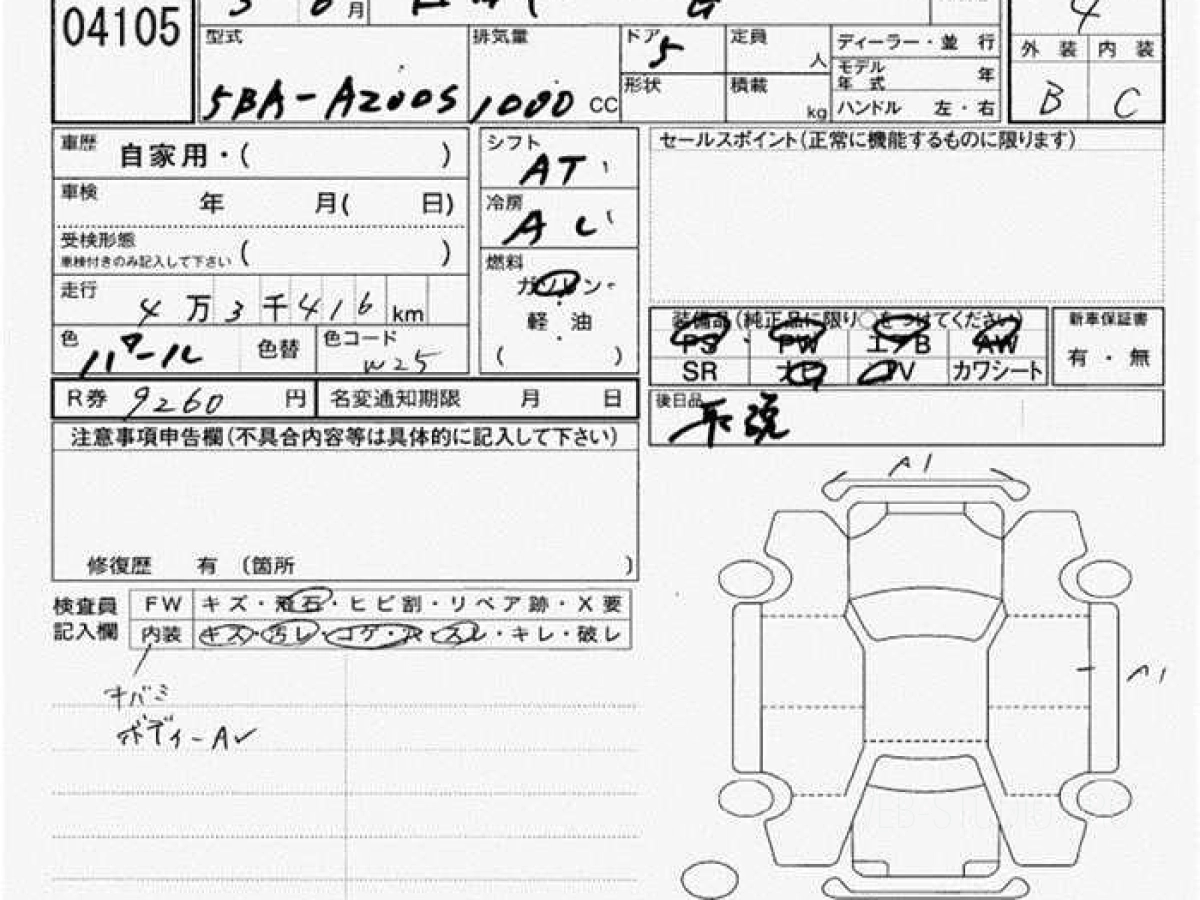 04105 月 G 4
型式 排気量 ドア 5 定員 人 ディーラー・並 行 外 装 内 装
5BA-A200S 1000 CC 形状 積載 kg モデル年式 年 B C
ハンドル 左・右
車歴 自家用・( ) シフト AT セールスポイント(正常に機能するものに限ります)
車検 年 月( 日) 冷房
受検形態 ( )
車検付きのみ記入して下さい
燃料 ガソリン・
軽 油
( )
走行 4 万 3 千 416 km
色 パール 色替 色コード W25
装備品(純正品に限り○をつけてください) 新車保証書
PS PW エアB AW 有・無
SR TV カワシート
R券 9260 円 名変通知期限 月 日
後日品 取説
注意事項申告欄(不具合内容等は具体的に記入して下さい)
修復歴 有 (箇所 )
A1
検査員 記入欄
FW キズ・飛石・ヒビ割・リペア跡・X要
内装 キズ・汚レ・コゲ・穴・スレ・キレ・破レ
キバミ
ボディーA
A1